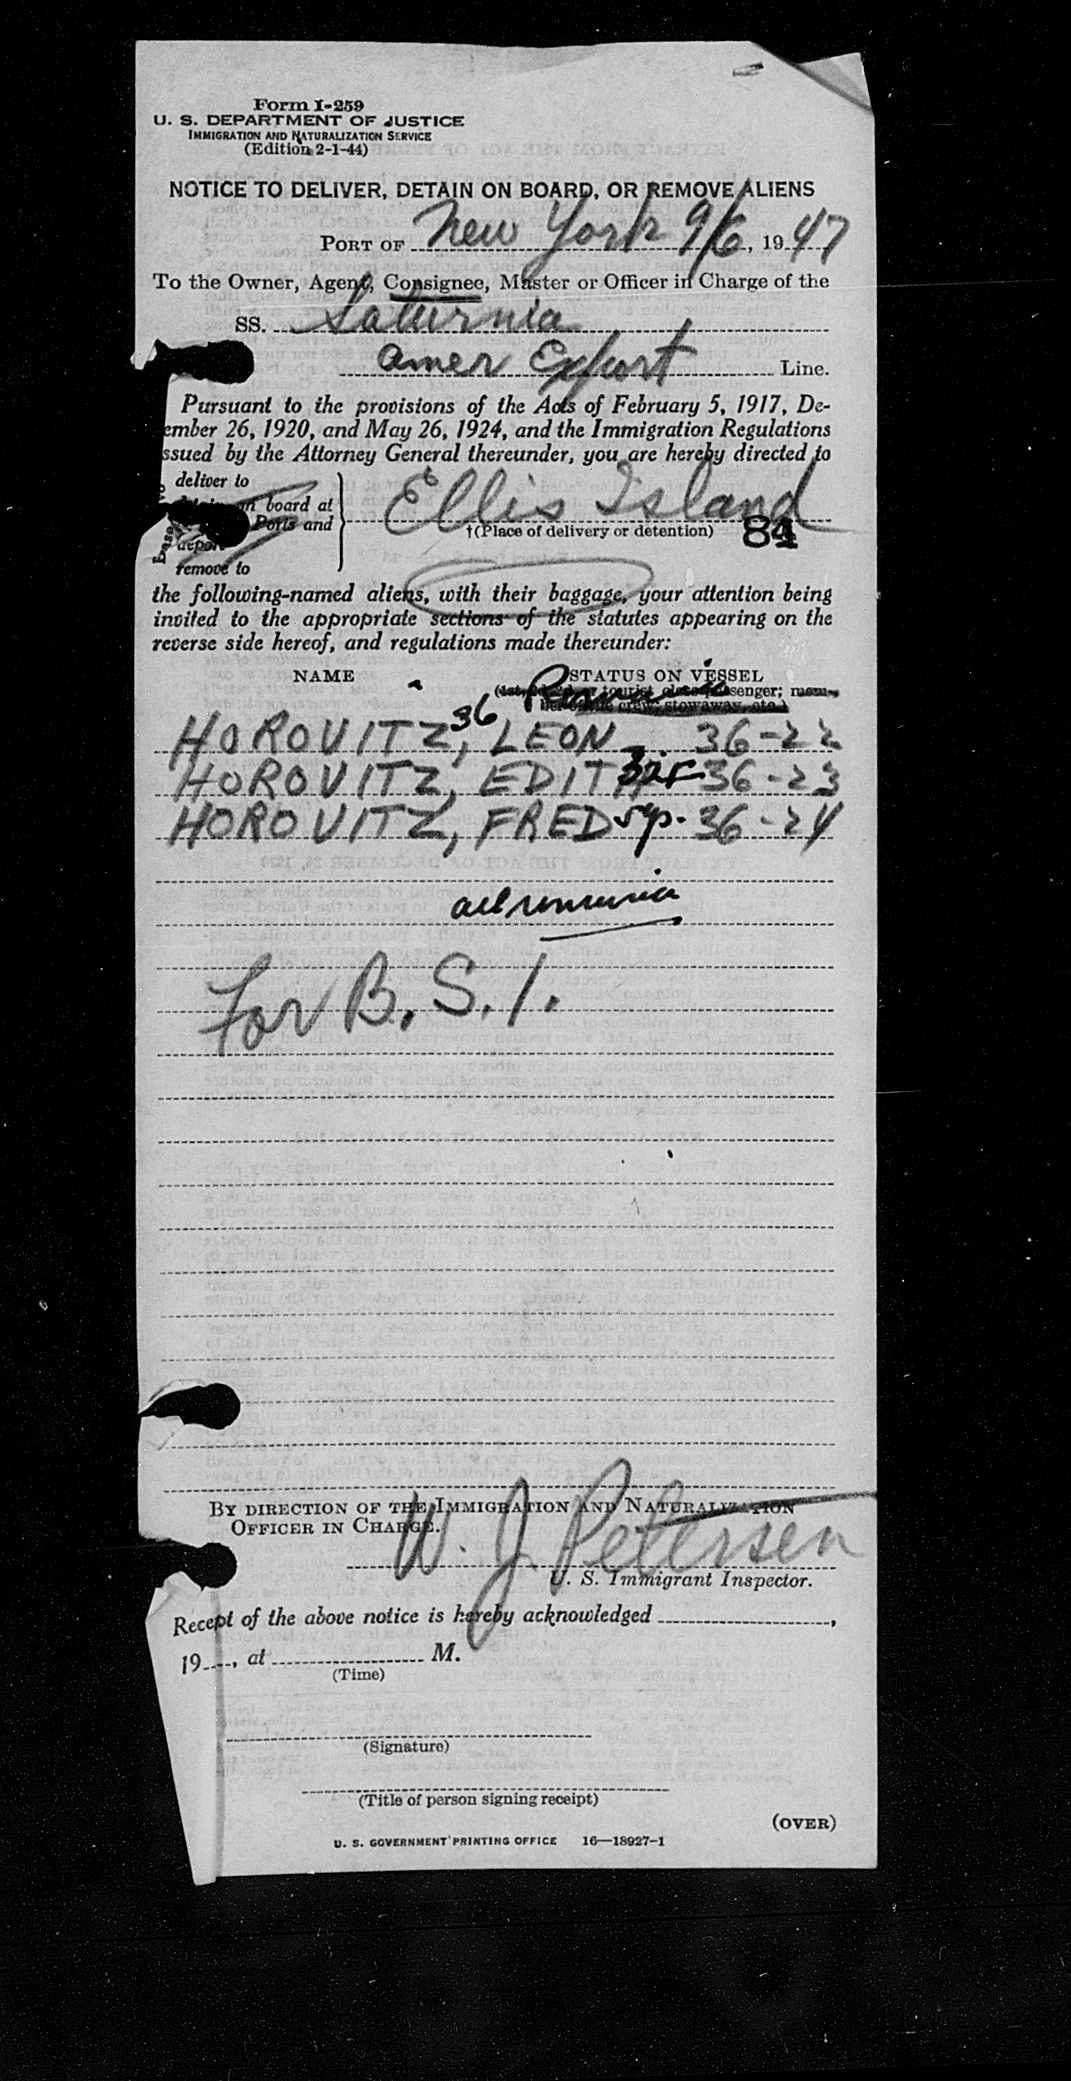 Form I-259
U. S. DEPARTMENT OF JUSTICE
IMMIGRATION AND NATURALIZATION SERVICE
(Edition 2-1-44)
NOTICE TO DELIVER, DETAIN ON BOARD, OR REMOVE ALIENS
PORT OF New York 9/6, 1947
To the Owner, Agent, Consignee, Master or Officer in Charge of the
SS. Saturnia
Amer Export Line.
Pursuant to the provisions of the Acts of February 5, 1917, De-
ember 26, 1920, and May 26, 1924, and the Immigration Regulations
ssued by the Attorney General thereunder, you are hereby directed to
deliver to
on board at
Ports and
depor
remove to
Ellis Island
†(Place of delivery or detention) 84
the following-named aliens, with their baggage, your attention being
invited to the appropriate sections of the statutes appearing on the
reverse side hereof, and regulations made thereunder:
NAME STATUS ON VESSEL
(1st, 2d, or tourist class passenger; mem-
ber of the crew; stowaway, etc.)
HOROVITZ, 36 LEON 36-22
HOROVITZ, EDITH 32F 36-23
HOROVITZ, FRED 5yp. 36-24
all rumunia
For B. S. I.
BY DIRECTION OF THE IMMIGRATION AND NATURALIZATION
OFFICER IN CHARGE.
W. J. Petersen
U. S. Immigrant Inspector.
Receipt of the above notice is hereby acknowledged ,
19 , at M.
(Time)
(Signature)
(Title of person signing receipt)
(OVER)
U. S. GOVERNMENT PRINTING OFFICE 16—18927-1